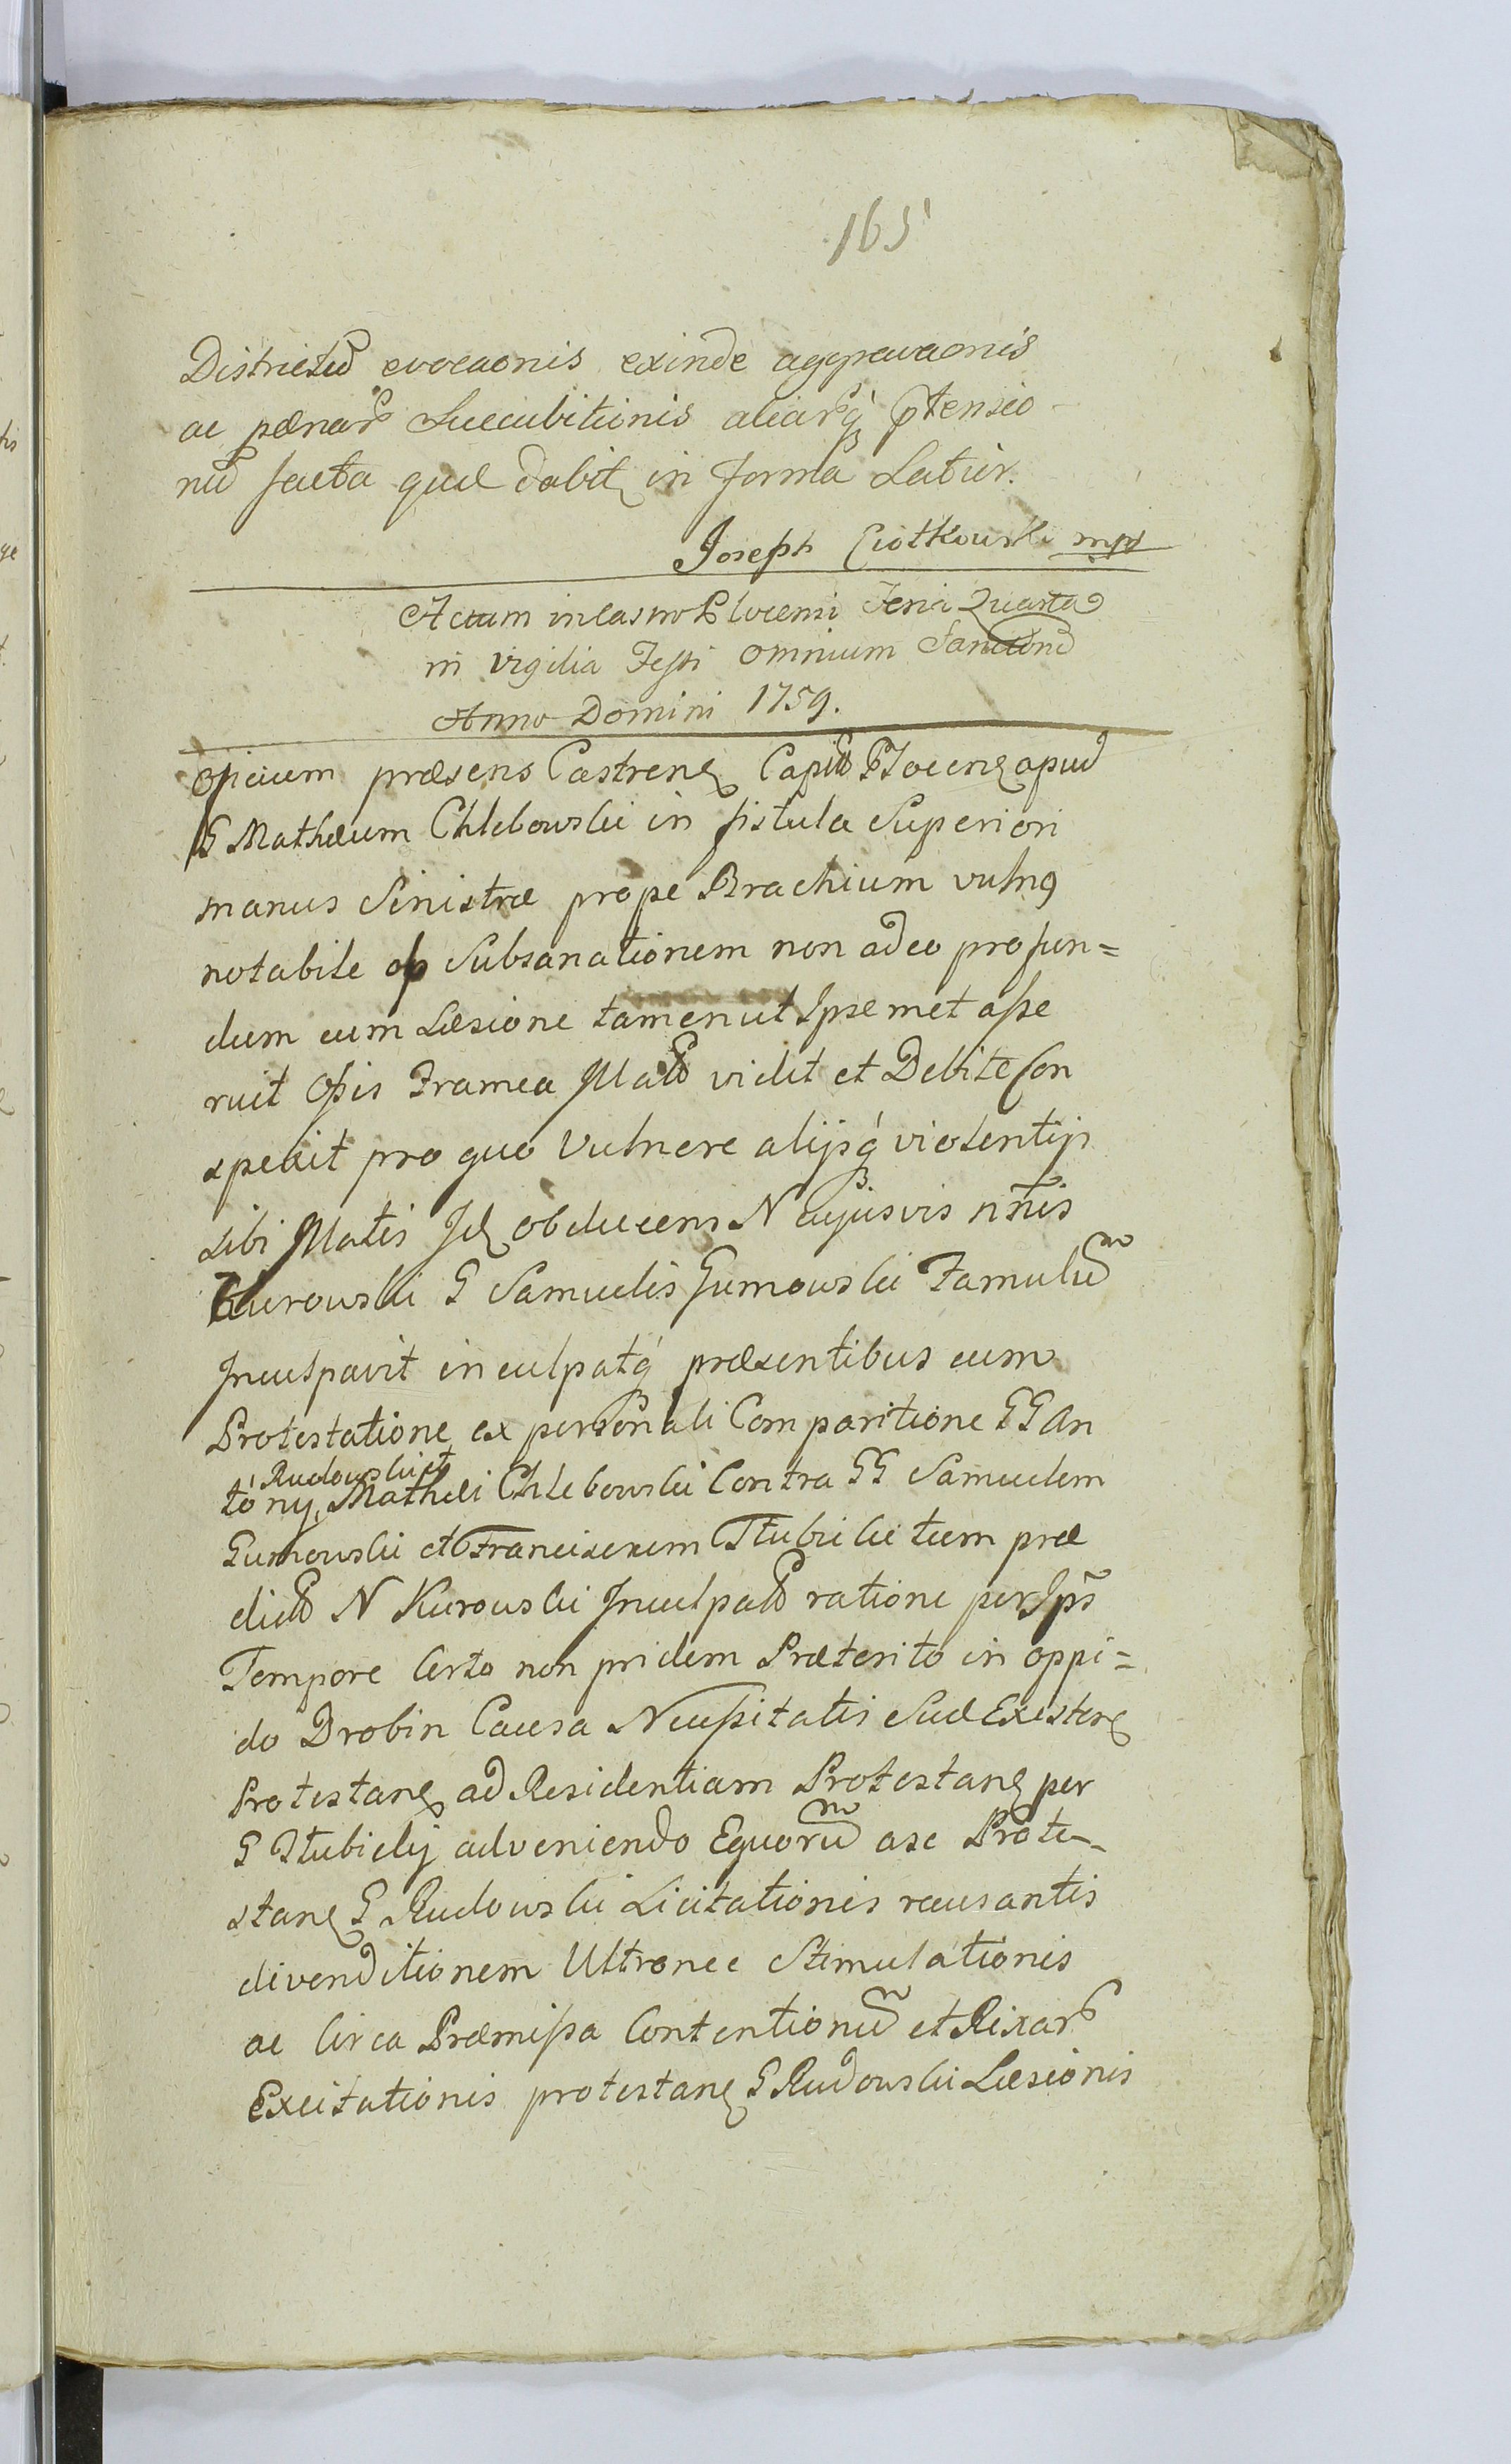 165
Districtū evocaonis exinde aggravaonis
ac pænarū Succubitionis aliarūq₃ ptensio-
nū facta quæ dabit in forma Latior.
Joseph Ciołkowski mp
Actum in Castro Plocensi Feria Quarta
in Vigilia Festi Omnium Sanctorū
Anno Domini 1759.
Officium præsens Castren Capit Plocen apud
G Mathæum Chlebowski in fistula Superiori
manus Sinistræ prope Brachium vulnq
notabile ob Subsanationem non adeo profun=
dum cum Læsione tamen ut Ipsemet asse
ruit Ossis Framea Illat vidit et Debite Con
spexit pro quo Vulnere alijsq₃ violentijs
sibi Illatis Id obducens N cujusvis nn̄is
Kurowski G Samuelis Gumowski Famulum
Inculpavit inculpatq₃ præsentibus cum
Protestatione ex personali Comparitione GG An
Rudowski et
tonij, Mathei Chlebowski Contra GG Samuelem
Gumowski et Franciscum Stubicki tum præ
dict N Kurowski Inculpat ratione per Ips̄
Tempore Certo non pridem Præterito in oppi=
do Drobin Causa Necessitatis Suæ Existen
Protestan ad Residentiam Protestan per
G Stubicki adveniendo Equorum ase Prote-
stan G Rudowski Licitationis recusantis
divenditionem Ultronee Stimulationis
ac Circa Præmissa Contentionum et Rixar
Excitationis protestan G Rudowski Læsionis